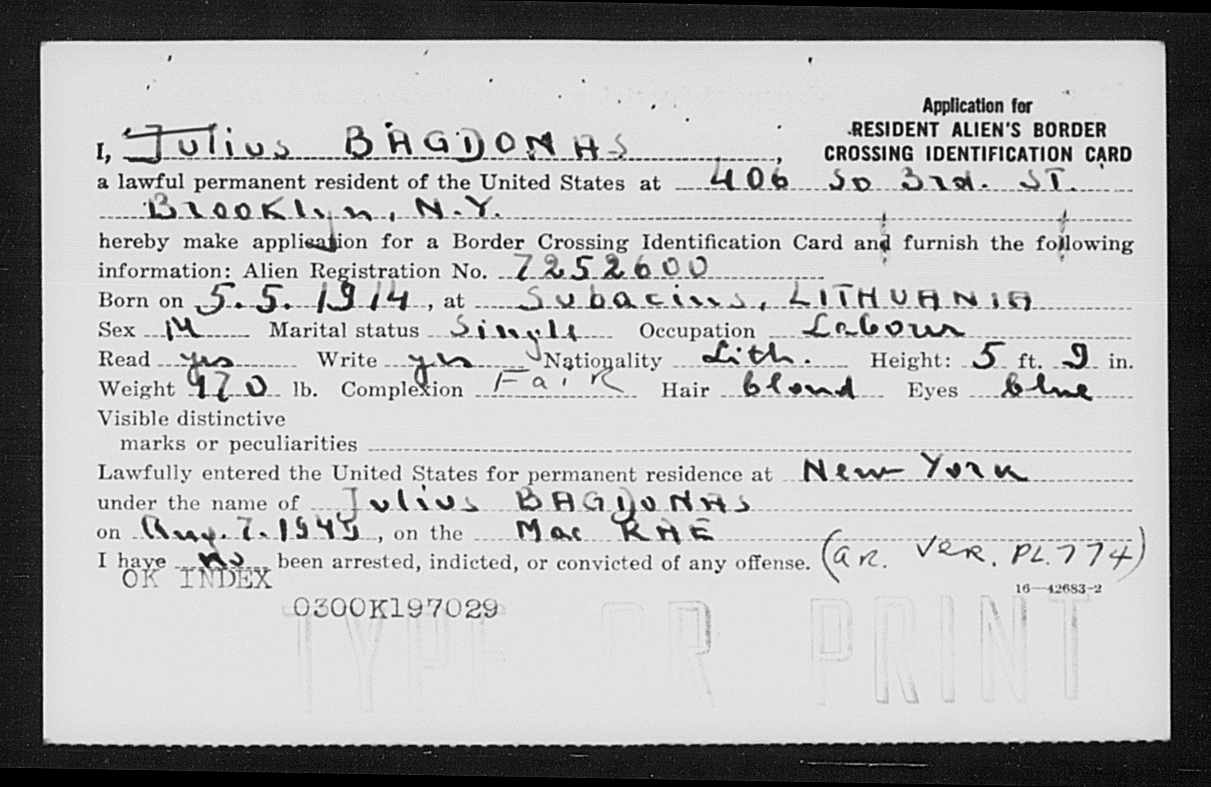 Application for
RESIDENT ALIEN'S BORDER
CROSSING IDENTIFICATION CARD
I, Julius BAGDONAS ,
a lawful permanent resident of the United States at 406 So 3rd. ST.
Brooklyn, N.Y.
hereby make application for a Border Crossing Identification Card and furnish the following
information: Alien Registration No. 7252600
Born on 5.5.1914, at Subacius, LITHUANIA
Sex M Marital status Single Occupation Labour
Read yes Write yes Nationality Lith. Height: 5 ft. 9 in.
Weight 170 lb. Complexion Fair Hair blond Eyes blue
Visible distinctive
marks or peculiarities
Lawfully entered the United States for permanent residence at New York
under the name of Julius BAGDONAS
on Aug. 7. 1949, on the Mac RAE
I have no been arrested, indicted, or convicted of any offense. (a R. VER. PL. 774)
OK INDEX
16—42683-2
0300K197029
TYPE OR PRINT